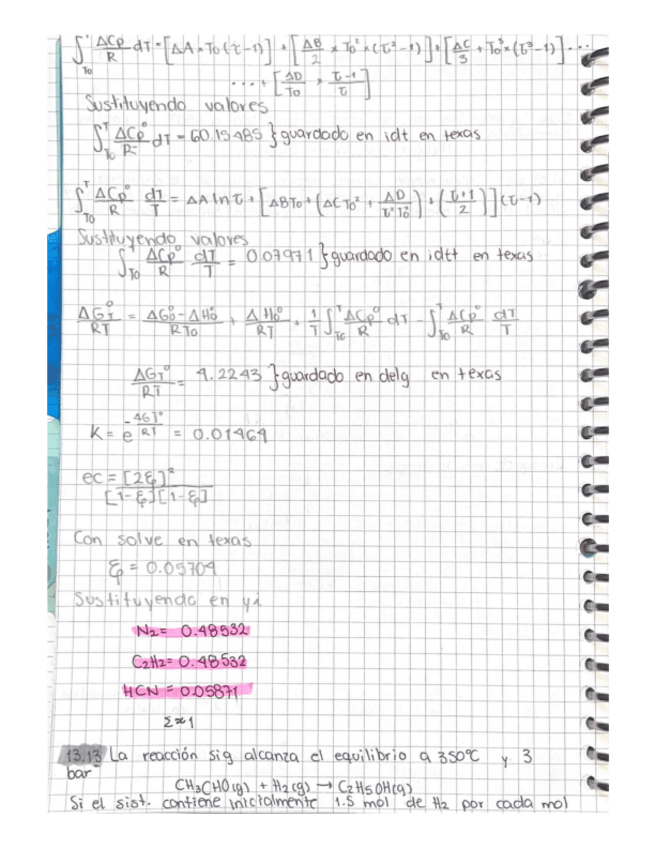 ∫_To^τ ΔCp/R dT = [ΔA × To (τ-1)] + [ΔB/2 × To² × (τ²-1)] + [ΔC/3 + To³ × (τ³-1)] ...
... + [ΔD/To × τ-1/τ]
Sustituyendo valores
∫_To^T ΔCp°/R dT = 60.15485 } guardado en idt en texas
∫_To^T ΔCp°/R dT/T = ΔA ln τ + [ΔBTo + (ΔCTo² + ΔD/τ²To²) + (τ+1/2)] (τ-1)
Sustituyendo valores
∫_To^T ΔCp°/R dT/T = 0.07971 } guardado en idtt en texas
ΔG_T°/RT = ΔG₀°-ΔH₀°/RTo + ΔH₀°/RT + 1/T ∫_To^T ΔCp°/R dT - ∫_To^T ΔCp°/R dT/T
ΔG_T°/RT = 4.2243 } guardado en delg en texas
K = e^(-ΔGT°/RT) = 0.01464
ec = [2ξ]²/[1-ξ][1-ξ]
Con solve en texas
ξ = 0.05704
Sustituyendo en yi
N2 = 0.48532
C2H2 = 0.48532
HCN = 0.05871
Σ≈1
13.13 La reacción sig alcanza el equilibrio a 350°C y 3
bar
CH3CHO(g) + H2(g) → C2H5OH(g)
Si el sist. contiene inicialmente 1.5 mol de H2 por cada mol